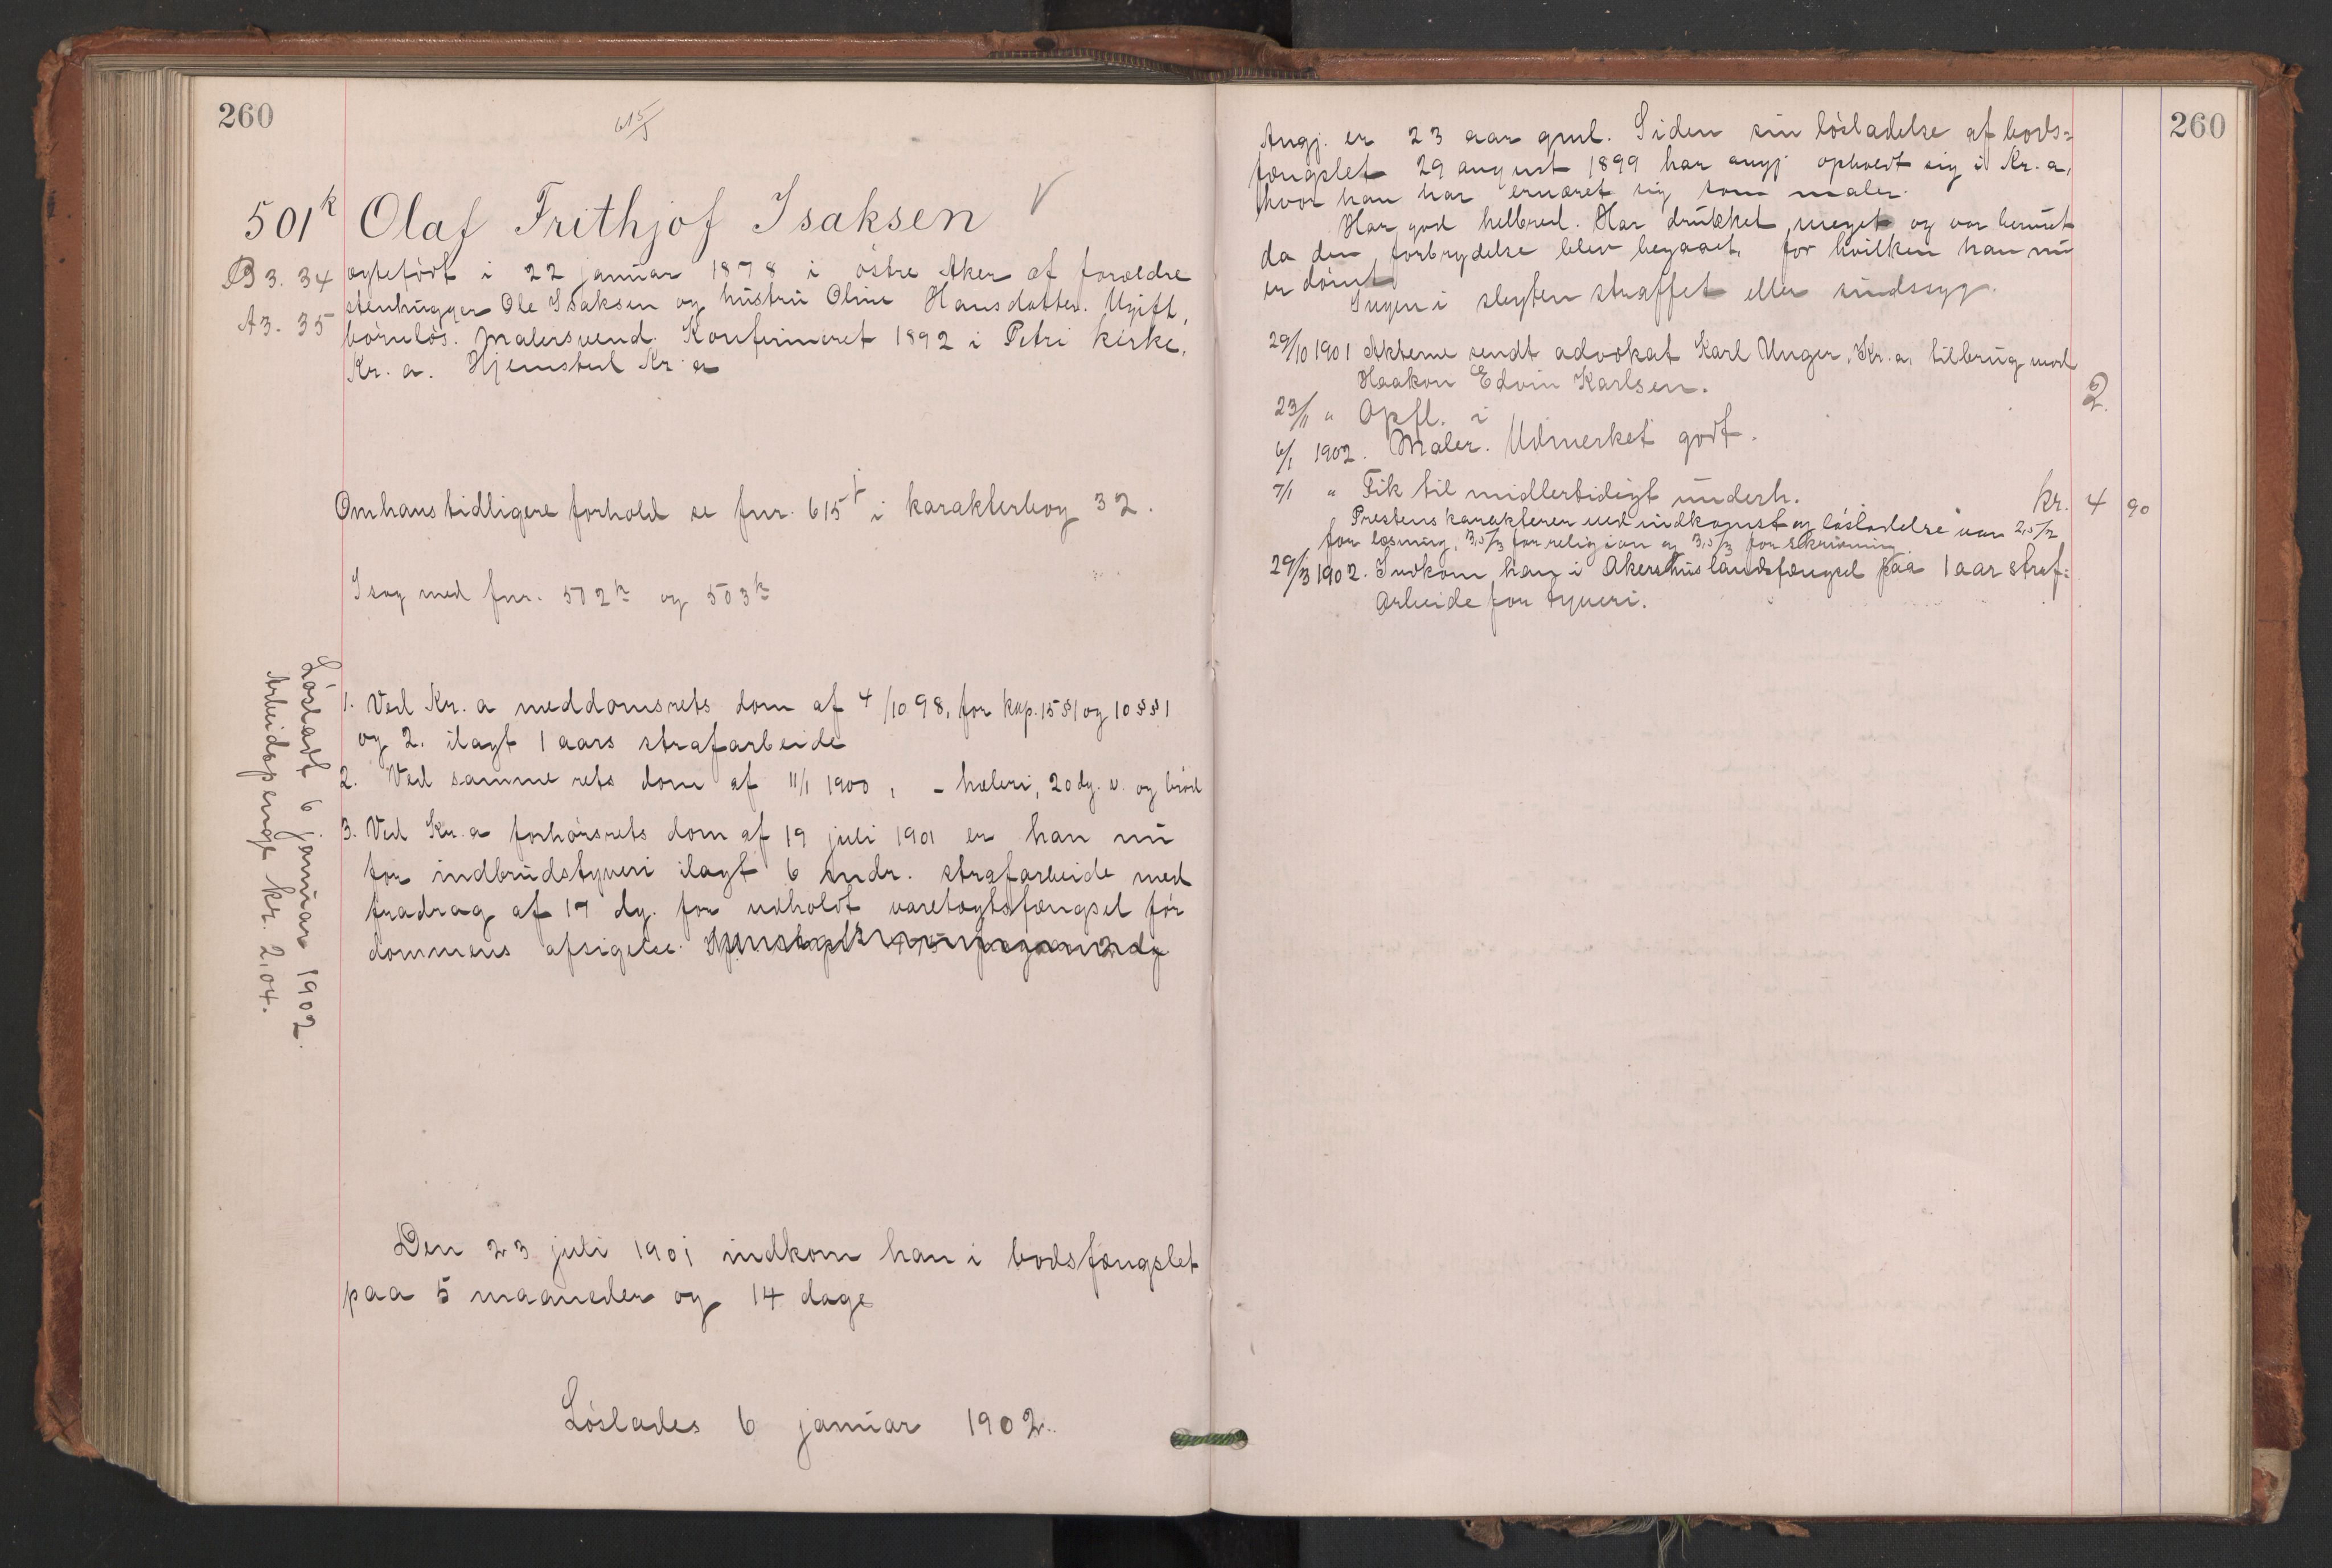 260
615/J
501k Olaf Frithjof Isaksen V
B 3. 34 ægtefødt i 22 januar 1878 i østre Aker af forældre
stenhugger Ole Isaksen og hustru Oline Hansdatter. Ugift,
A 3. 35 børnløs. Malersvend. Konfirmeret 1892 i Petri kirke,
Kr. a. Hjemsted Kr. a
Om hans tidligere forhold se fnr. 615 J i karakterbog 32.
I sag med fnr. 502k og 503k
1. Ved Kr. a meddomsrets dom af 4/10 98, for kap. 15 § 1 og 10 §§ 1
og 2. ilagt 1 aars strafarbeide
2. Ved samme rets dom af 11/1 1900, - hæleri, 20 dg. v. og brød
3. Ved Kr. a forhørsrets dom af 19 juli 1901 er han nu
for indbrudstyveri ilagt 6 mdr. strafarbeide med
fradrag af 17 dg. for udholdt varetægtsfængsel før
dommens afsigelse.
Løsladt 6 januar 1902.
Arbeidspenge kr. 2,04.
Den 23 juli 1901 indkom han i bodsfængslet
paa 5 maaneder og 14 dage
Løslades 6 januar 1902.
260
Angj. er 23 aar gml. Siden sin løsladelse af bods=
fængslet 29 august 1899 har angj opholdt sig i Kr. a,
hvor han har ernæret sig som maler.
Har god helbred. Har drukket meget og var beruset
da den forbrydelse blev begaaet, for hvilken han nu
er dømt
Ingen i slegten straffet eller sindssyg.
29/10 1901 Akterne sendt advokat Karl Unger, Kr. a, til brug mod
Haakon Edvin Karlsen.
23/11 " Opfl. i 2.
6/1 1902. Maler. Udmerket godt.
7/1 " Fik til midlertidigt underh. kr. 4 90
Prestens karakterer ved indkomst og løsladelse var 2,5/2
for læsning, 3,5/3 for religion og 3,5/3 for skrivning.
29/3 1902. Indkom han i Akershus landsfængsel paa 1 aar straf=
arbeide for tyveri.